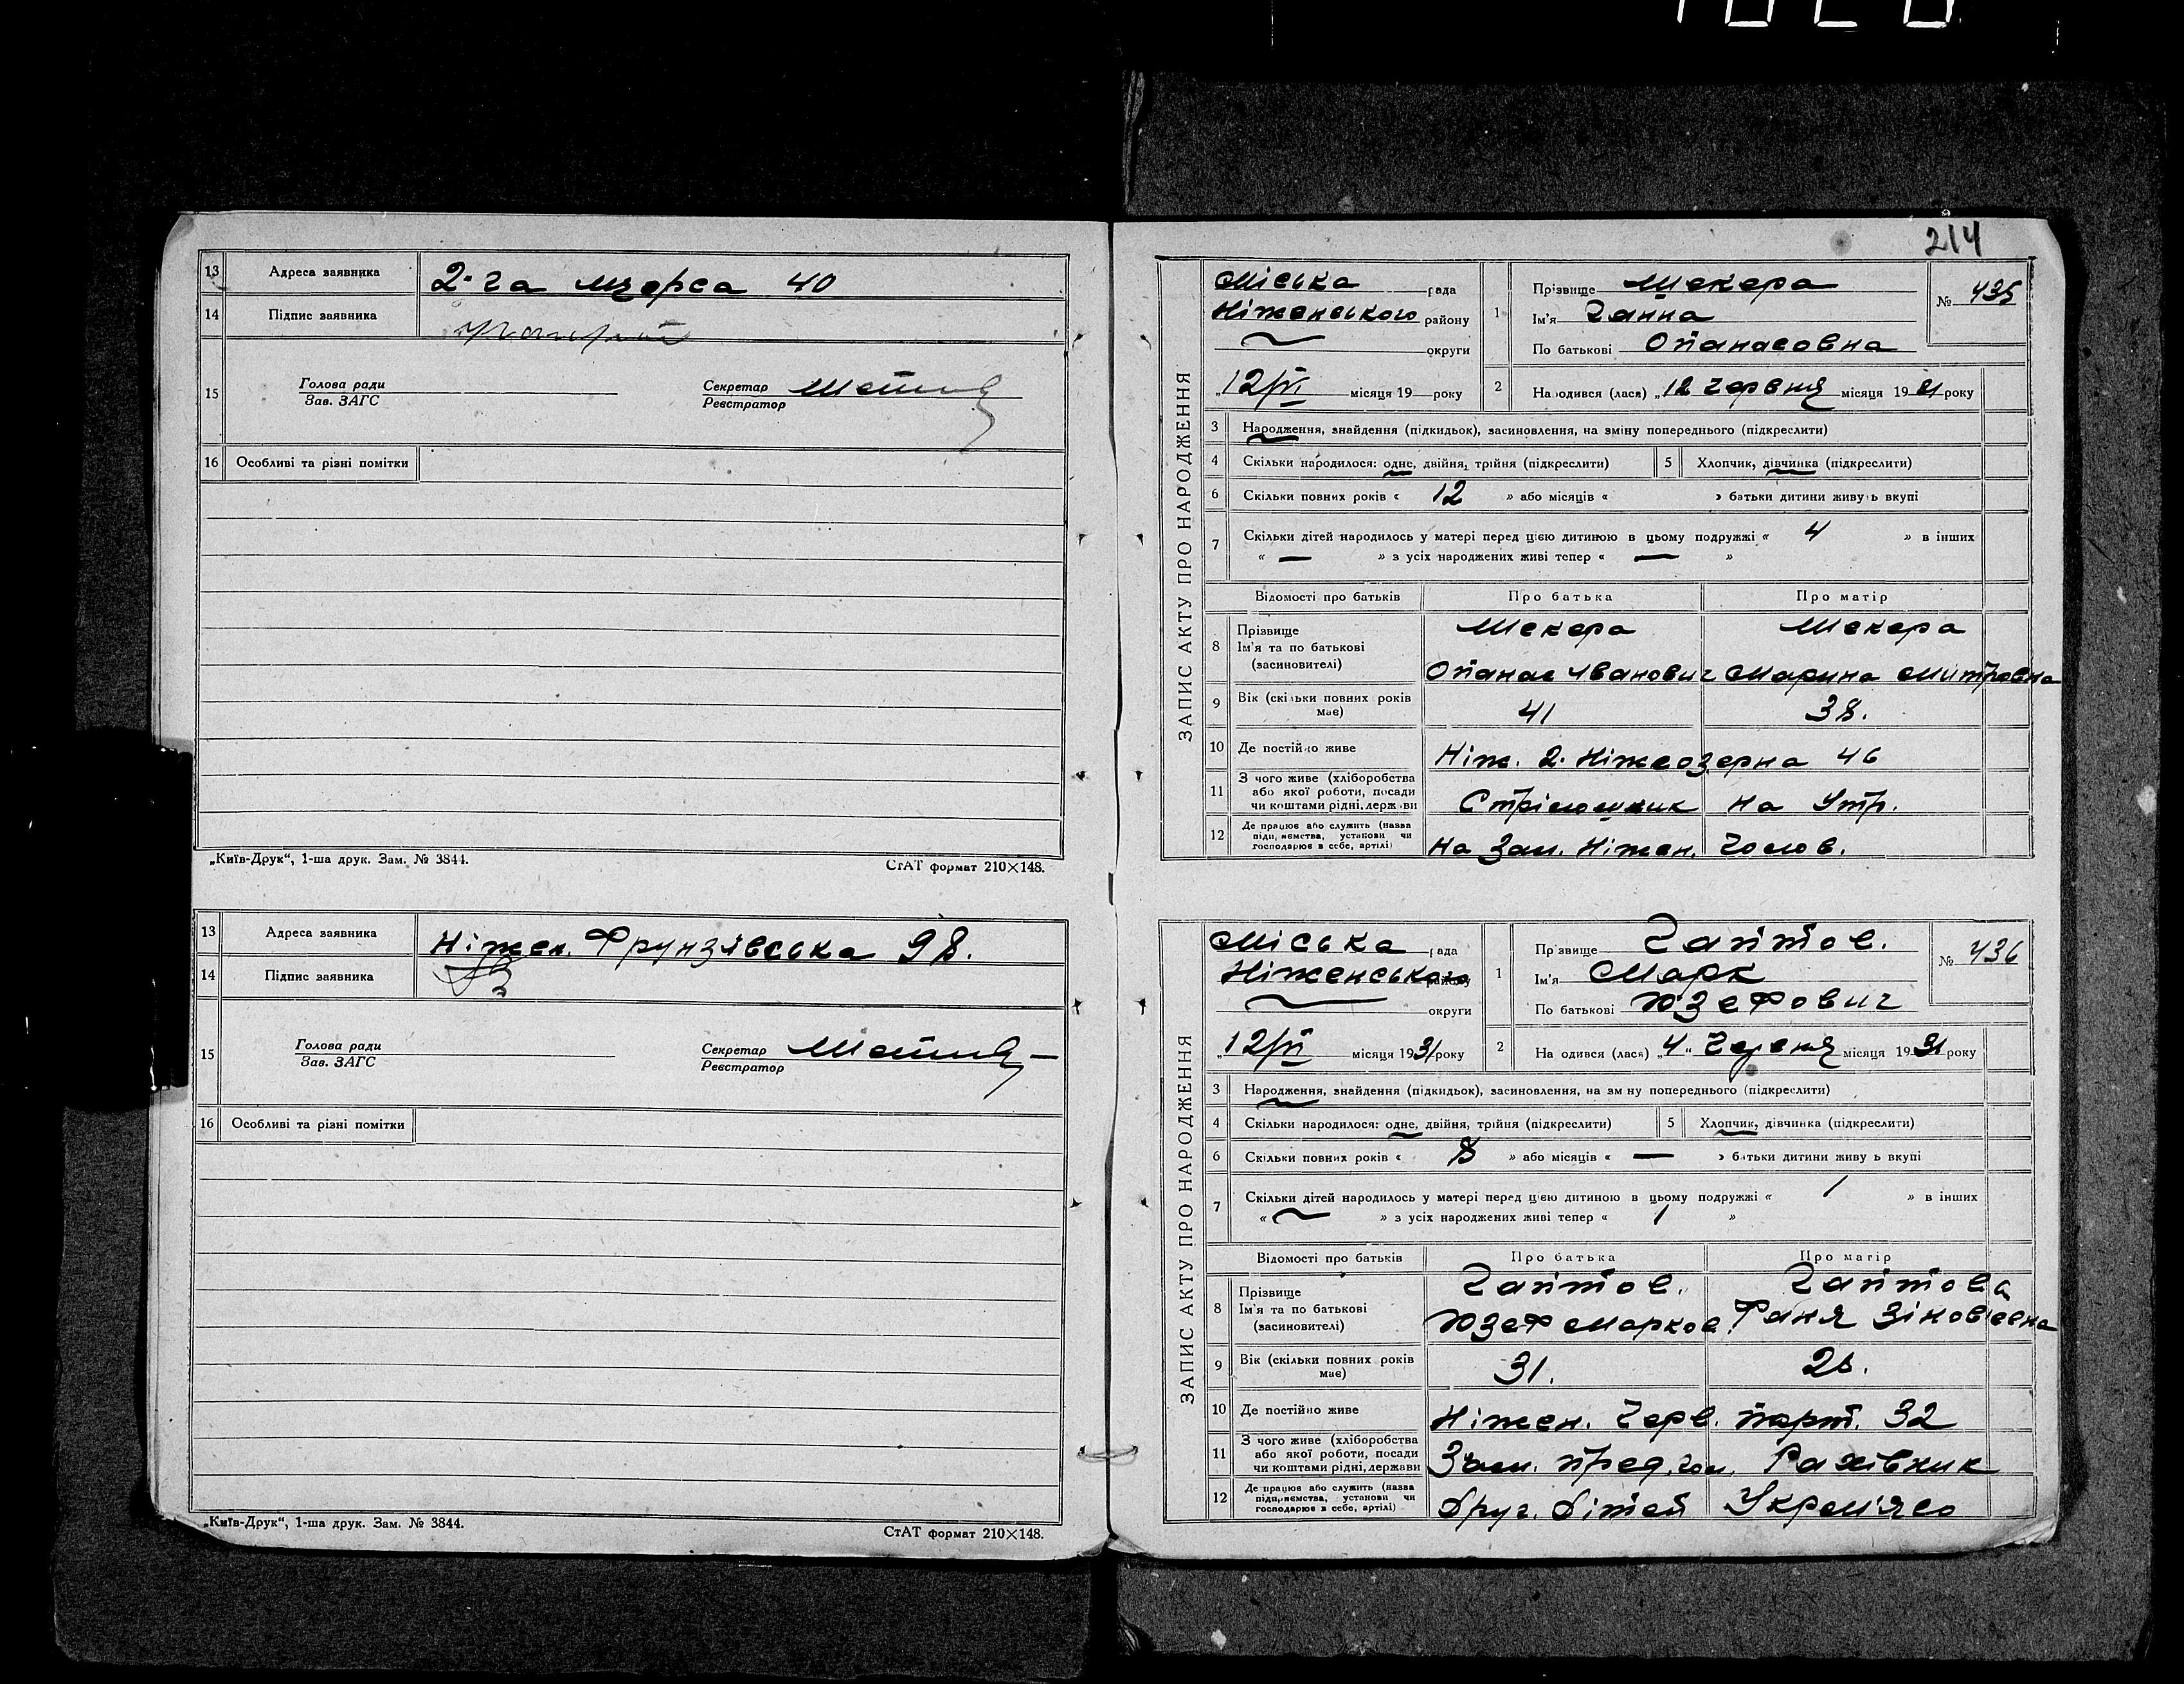 13 Адреса заявника 2-га Щорса 40
14 Підпис заявника
15 Голова ради
Зав. ЗАГС
Секретар
Реєстратор
16 Особливі та різні помітки
„Київ-Друк“, 1-ша друк. Зам. № 3844.
СтАТ формат 210×148.
13 Адреса заявника Ніжен. Фрунзівська 98.
14 Підпис заявника
15 Голова ради
Зав. ЗАГС
Секретар
Реєстратор
16 Особливі та різні помітки
„Київ-Друк“, 1-ша друк. Зам. № 3844.
СтАТ формат 210×148.
214
ЗАПИС АКТУ ПРО НАРОДЖЕННЯ
Міська рада
Ніженського району
округи
„12/VI місяця 19 року
1 Прізвище Шекера
Ім'я Ганна
По батькові Опанасовна
№ 435
2 Народився (лася) „12 Червня місяця 1931 року
3 Народження, знайдення (підкидьок), засиновлення, на зміну попереднього (підкреслити)
4 Скільки народилося: одне, двійня, трійня (підкреслити)
5 Хлопчик, дівчинка (підкреслити)
6 Скільки повних років « 12 » або місяців « » батьки дитини живуть вкупі
7 Скільки дітей народилось у матері перед цією дитиною в цьому подружжі « 4 » в інших
« — » з усіх народжених живі тепер « — »
Відомості про батьків Про батька Про матір
8 Прізвище Шекера Шекера
Ім'я та по батькові
(засновителі) Опанас Іванович Марина Митровна
9 Вік (скільки повних років має) 41 38.
10 Де постійно живе Ніж. 2. Ніжеозерна 46
11 З чого живе (хліборобства
або якої роботи, посади
чи коштами рідні, держави На Утр.
12 Де працює або служить (назва
підприємства, установи чи
господарює в себе, артілі) На Зал. Ніжен.
ЗАПИС АКТУ ПРО НАРОДЖЕННЯ
Міська рада
Ніженського району
округи
„12/VI місяця 1931 року
1 Прізвище Гайтов.
Ім'я Марк
По батькові Юзефович
№ 436
2 Народився (лася) „4“ Червня місяця 1931 року
3 Народження, знайдення (підкидьок), засиновлення, на зміну попереднього (підкреслити)
4 Скільки народилося: одне, двійня, трійня (підкреслити)
5 Хлопчик, дівчинка (підкреслити)
6 Скільки повних років « 8 » або місяців « — » батьки дитини живуть вкупі
7 Скільки дітей народилось у матері перед цією дитиною в цьому подружжі « 1 » в інших
« — » з усіх народжених живі тепер « 1 »
Відомості про батьків Про батька Про матір
8 Прізвище Гайтов. Гайтова
Ім'я та по батькові
(засиновителі) Юзеф Марков. Фаня Зіновіевна
9 Вік (скільки повних років має) 31.
10 Де постійно живе Ніжен. Черв. парт. 32
11 З чого живе (хліборобства
або якої роботи, посади
чи коштами рідні, держави Рахівник
12 Де працює або служить (назва
підприємства, установи чи
господарює в себе, артілі) Друг. Дітей Укрм'ясо